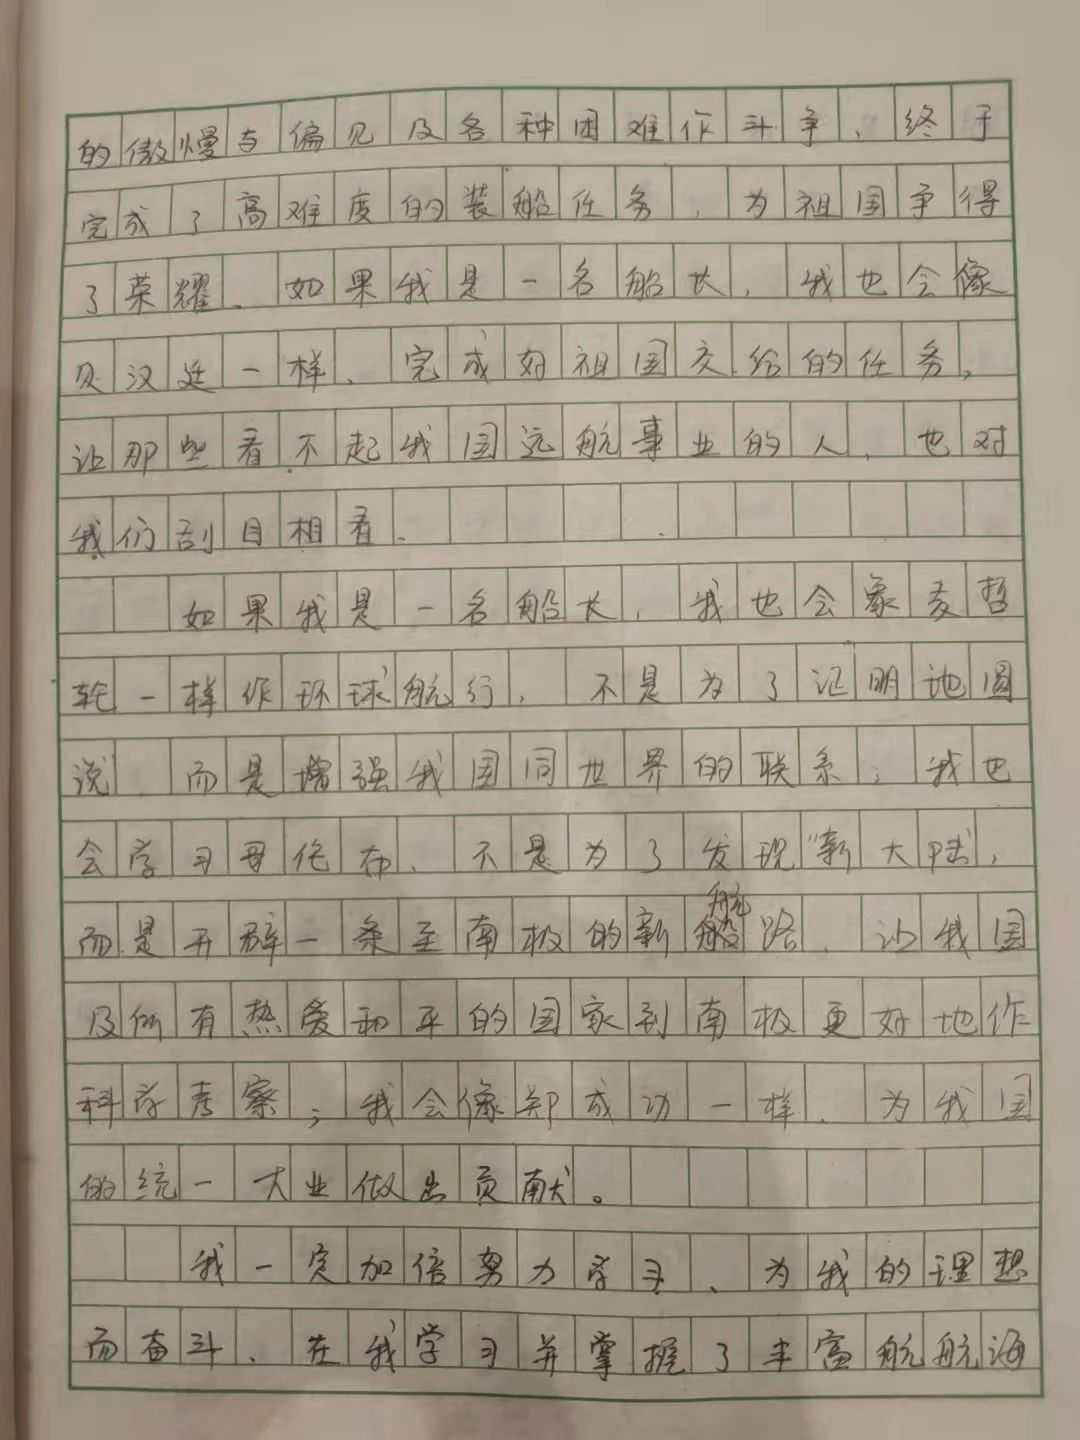 的傲慢与偏见及各种困难作斗争，终于
完成了高难度的装船任务，为祖国争得
了荣耀。如果我是一名船长，我也会像
贝汉廷一样，完成好祖国交给的任务，
让那些看不起我国远航事业的人，也对
我们刮目相看。
如果我是一名船长，我也会象麦哲
轮一样作环球航行，不是为了证明地圆
说，而是增强我国同世界的联系；我也
会学习哥伦布，不是为了发现“新大陆，
而是开辟一条至南极的新航路，让我国
及所有热爱和平的国家到南极更好地作
科学考察；我会像郑成功一样，为我国
的统一大业做出贡献。
我一定加倍努力学习，为我的理想
而奋斗，在我学习并掌握了丰富航航海